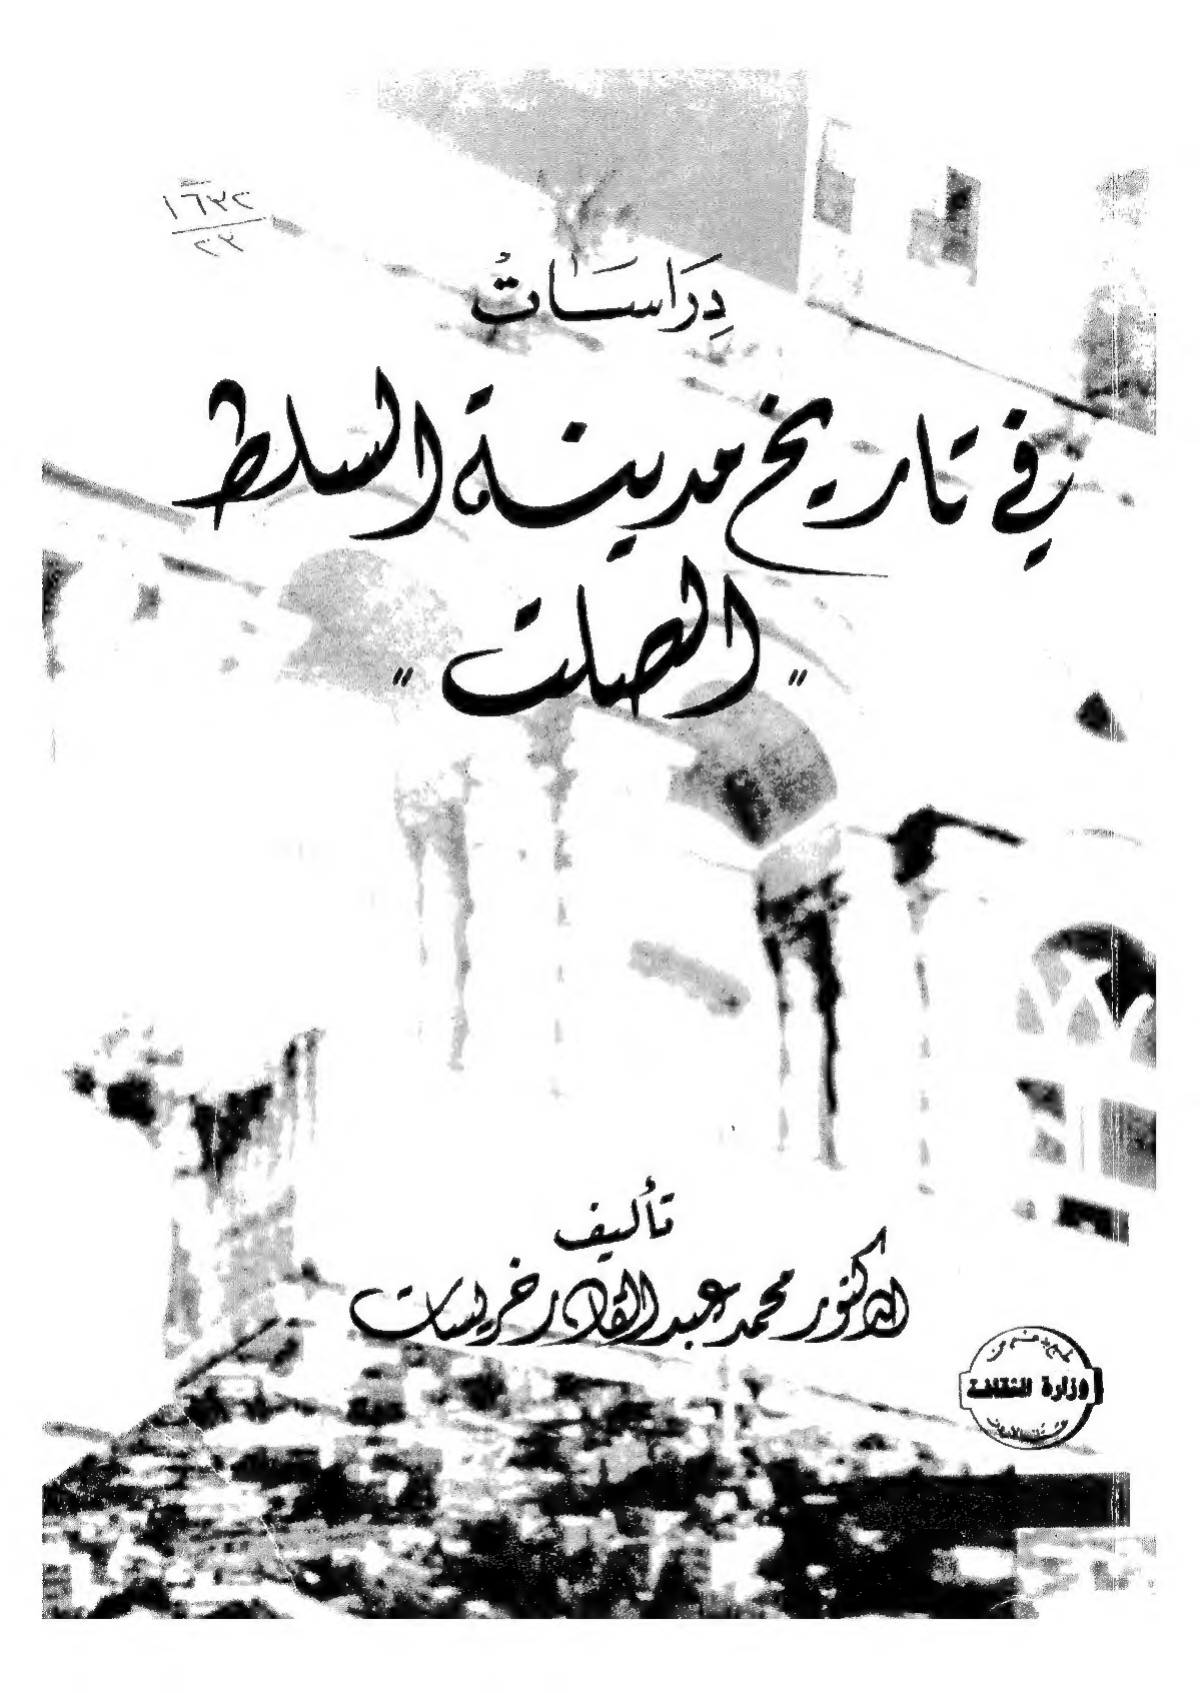 ١٦٣٢
٢٣
دِرَاسَاتٌ
في تاريخ مدينة السلط
"الصلت"
تأليف
الدكتور محمد عبد القادر خريسات
طبع بدعم من
وزارة الثقافة